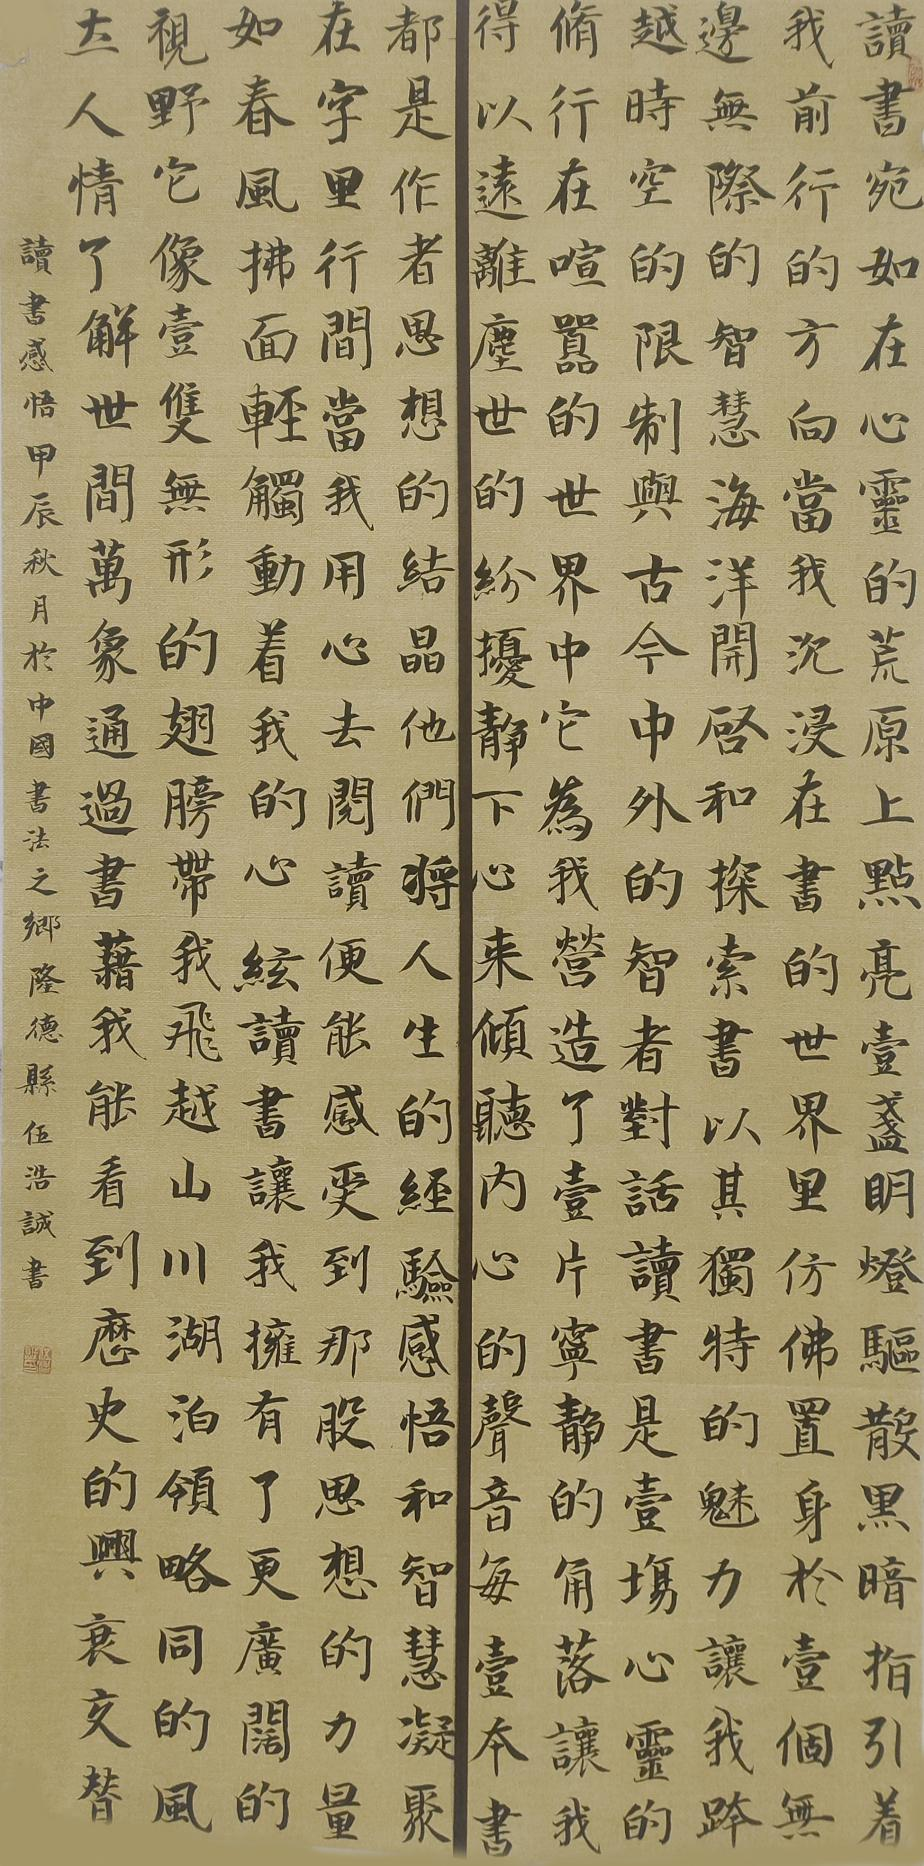 讀書宛如在心靈的荒原上點亮壹盞明燈驅散黑暗指引着
我前行的方向當我沉浸在書的世界里仿佛置身於壹個無
邊無際的智慧海洋開啓和探索書以其獨特的魅力讓我跨
越時空的限制與古今中外的智者對話讀書是壹場心靈的
脩行在喧囂的世界中它為我營造了壹片寧静的角落讓我
得以遠離塵世的紛擾静下心来傾聽内心的聲音每壹本書
都是作者思想的結晶他們將人生的經驗感悟和智慧凝聚
在字里行間當我用心去閱讀便能感受到那股思想的力量
如春風拂面輕觸動着我的心絃讀書讓我擁有了更廣闊的
視野它像壹雙無形的翅膀帶我飛越山川湖泊領略同的風
土人情了解世間萬象通過書藉我能看到歷史的興衰交替
讀書感悟甲辰秋月於中國書法之鄉隆德縣伍浩誠書